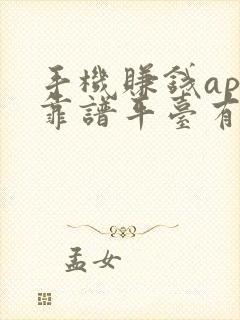 手機賺錢ap
靠譜平臺有
孟女